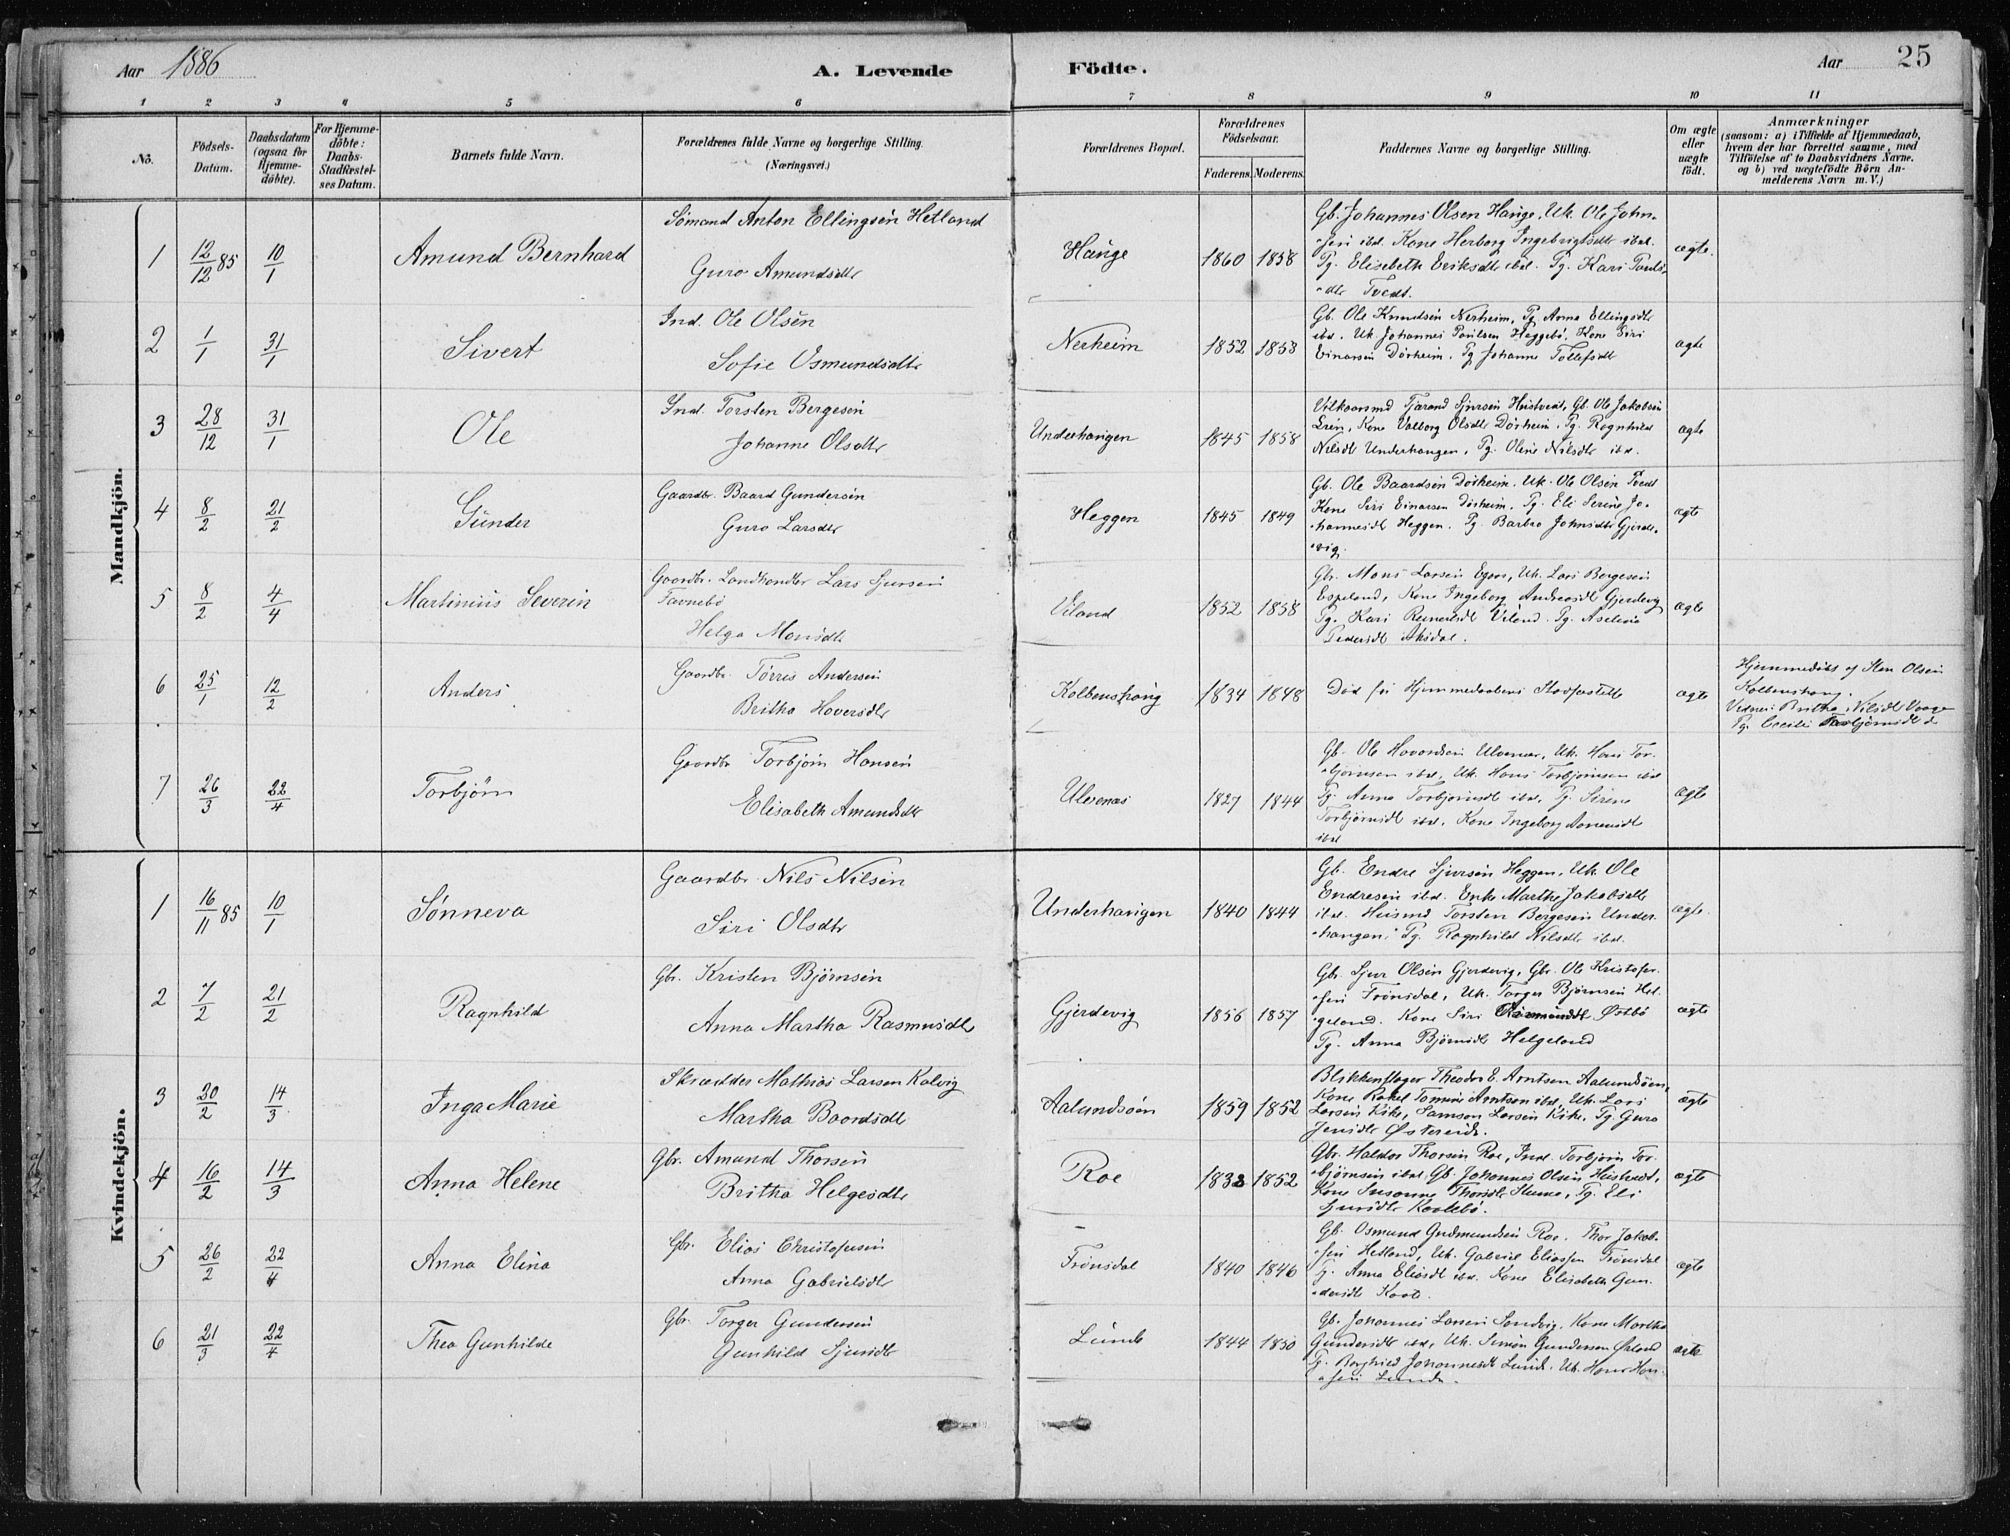 Aar 1886
A. Levende Födte.
Aar
25
1 2 3 4 5 6 7 8 9 10 11
No.
Födsels-
Datum.
Daabsdatum
(ogsaa for
Hjemme-
döbte).
For Hjemme-
döbte:
Daabs-
Stadfæstel-
ses Datum.
Barnets fulde Navn.
Forældrenes fulde Navne og borgerlige Stilling.
(Næringsvei.)
Forældrenes Bopæl.
Forældrenes
Födselsaar.
Faderens. Moderens.
Faddernes Navne og borgerlige Stilling.
Om ægte
eller
uægte
födt.
Anmærkninger
(saasom: a) i Tilfælde af Hjemmedaab,
hvem der har forrettet samme, med
Tilföielse af to Daabsvidners Navne.
og b) ved uægtefödte Börn An-
melderens Navn m. V.)
Mandkjön.
1 12/12 85 10/1 Amund Bernhard
Sømand Anton Ellingsen Hetland
Guro Amundsdtr
Hauge 1860 1858
Gb. Johannes Olsen Hauge, Uk. Ole John-
sen ibd. Kone Herborg Ingebrigtsdtr ibd.
Pg. Elisabeth Eriksdtr ibd. Pg. Kari Pouls-
dtr Tvedt.
ægte.
2 1/1 31/1 Sivert
Ind. Ole Olsen
Sofie Osmundsdtr
Nerheim 1852 1853
Gb. Ole Knudsen Nerheim, Pg Anna Ellingsdtr
ibd. Uk Johannes Poulsen Heggebø, Kone Siri
Einarsen Dørheim. Pg Johanne Tollefsdtr
ægte
3 28/12 31/1 Ole
Ind. Torsten Bergesen
Johanne Olsdtr
Underhaugen 1845 1858
Vilkaarsmd Tjerand Sjursen Heistvedt, Gb. Ole Jakobsen
Kone Valborg Olsdtr Dørheim, Pg. Ragnhild
Nilsdt Underhaugen, Pg. Oline Nilsdtr ibd.
ægte
4 8/2 21/2 Gunder
Gaardbr. Baard Gundersen
Guro Larsdtr
Heggen 1845 1849
Gb. Ole Baardsen Dørheim. Uk. Ole Olsen Tvedt
Kone Siri Einarsen Dørheim. Pg. Eli Serine Jo-
hannesdt Heggen. Pg. Barbro Johnsdtr Gjerde-
vig.
ægte
5 8/2 4/4 Martinius Severin
Gaardbr. Landhandler Lars Sjursen
Favnebø
Helga Monsdtr
Viland 1852 1858
Gbr. Mons Larsen Egnes, Uk. Lars Bergesen
Espeland, Kone Ingeborg Andreasdt Gjerdevig
Pg. Kari Reinertsdt Viland. Pg. Aselena
Pedersdt Aksdal.
ægte
6 25/1 12/2 Anders
Gaardbr. Torris Andersen
Britha Hoversdtr
Kolbenshaug 1834 1848
Død før Hjemmedaabens Stadfæstelse
ægte
Hjemmedøbt af Sten Olsen
Kolbenshaug.
Vidner: Britha Nilsdt Vaage
Pg. Cecilie Torbjørnsdt
7 26/3 22/4 Torbjørn
Gaardbr Torbjørn Hansen
Elisabeth Amundsdtr
Ulvenes 1827 1844
Gb. Ole Hovordsen Ulvenes, Uk. Hans Tor-
bjørnsen ibd, Uk. Hans Torbjørnsen ibd
Pg. Anna Torbjørnsdt ibd, Pg. Sirene
Torbjørnsdt ibd. Kone Ingeborg Aanensdt
ibd
ægte
Kvindekjön.
1 16/11 85 10/1 Sønneva
Gaardbr. Nils Nilsen
Siri Olsdtr
Underhaugen 1840 1844
Gb. Endre Sjursen Heggen, Uk. Ole
Endresen ibd. Enke Marthe Jakobsdtr
ibd. Huusmd Torsten Bergesen Under-
haugen. Pg. Ragnhild Nilsdtr ibd.
ægte.
2 7/2 21/2 Ragnhild
Gbr. Kristen Bjørnsen
Anna Martha Rasmusdtr
Gjerdevig 1856 1857
Gb. Sjur Olsen Gjerdevig, Gbr. Ole Kristofer-
sen Frønsdal, Uk. Torger Bjørnsen Hel-
geland. Kone Siri Østbø
Pg. Anna Bjørnsdt Helgeland
ægte
3 20/2 14/3 Inga Marie
Skrædder Mathias Larsen Kalvig
Martha Baardsdtr
Aalundsøen 1859 1852
Blikkenslager Theodor E. Arntsen Aalundsøen,
Kone Rakel Tomine Arntsen ibd, Uk. Lars
Larsen Kike, Samson Larsen Kike, Pg. Guro
Jensdt Østereide.
ægte
4 16/2 14/3 Anna Helene
Gbr. Amund Thorsen
Britha Helgesdtr
Roe 1838 1852
Gbr. Haldor Thorsen Roe, Ind. Torbjørn Tor-
bjørnsen ibd. Gb. Johannes Olsen Heistvedt,
Kone Susanne Thorsdt Stumo, Pg. Eli
ægte
5 26/2 22/4 Anna Elina
Gbr. Elias Christofersen
Anna Gabrielsdtr
Frønsdal 1840 1846
Gb. Osmund Gudmundsen Roe. Thor Jakob-
sen Hetland, Uk. Gabriel Eliassen Frønsdal
Pg. Anna Eliasdt ibd. Kone Elisabeth Gun-
dersdt
ægte
6 21/3 22/4 Thea Gunhilde
Gbr. Torger Gundersen
Gunhild Sjursdtr
Lunde 1844 1850
Gb. Johannes Larsen Sandvig. Kone Martha
Gundersdt ibd, Uk. Simon Gundersen Øvland
Pg. Borghild Johannesdt Lunde. Uk. Hans Han-
sen Lunde.
ægte